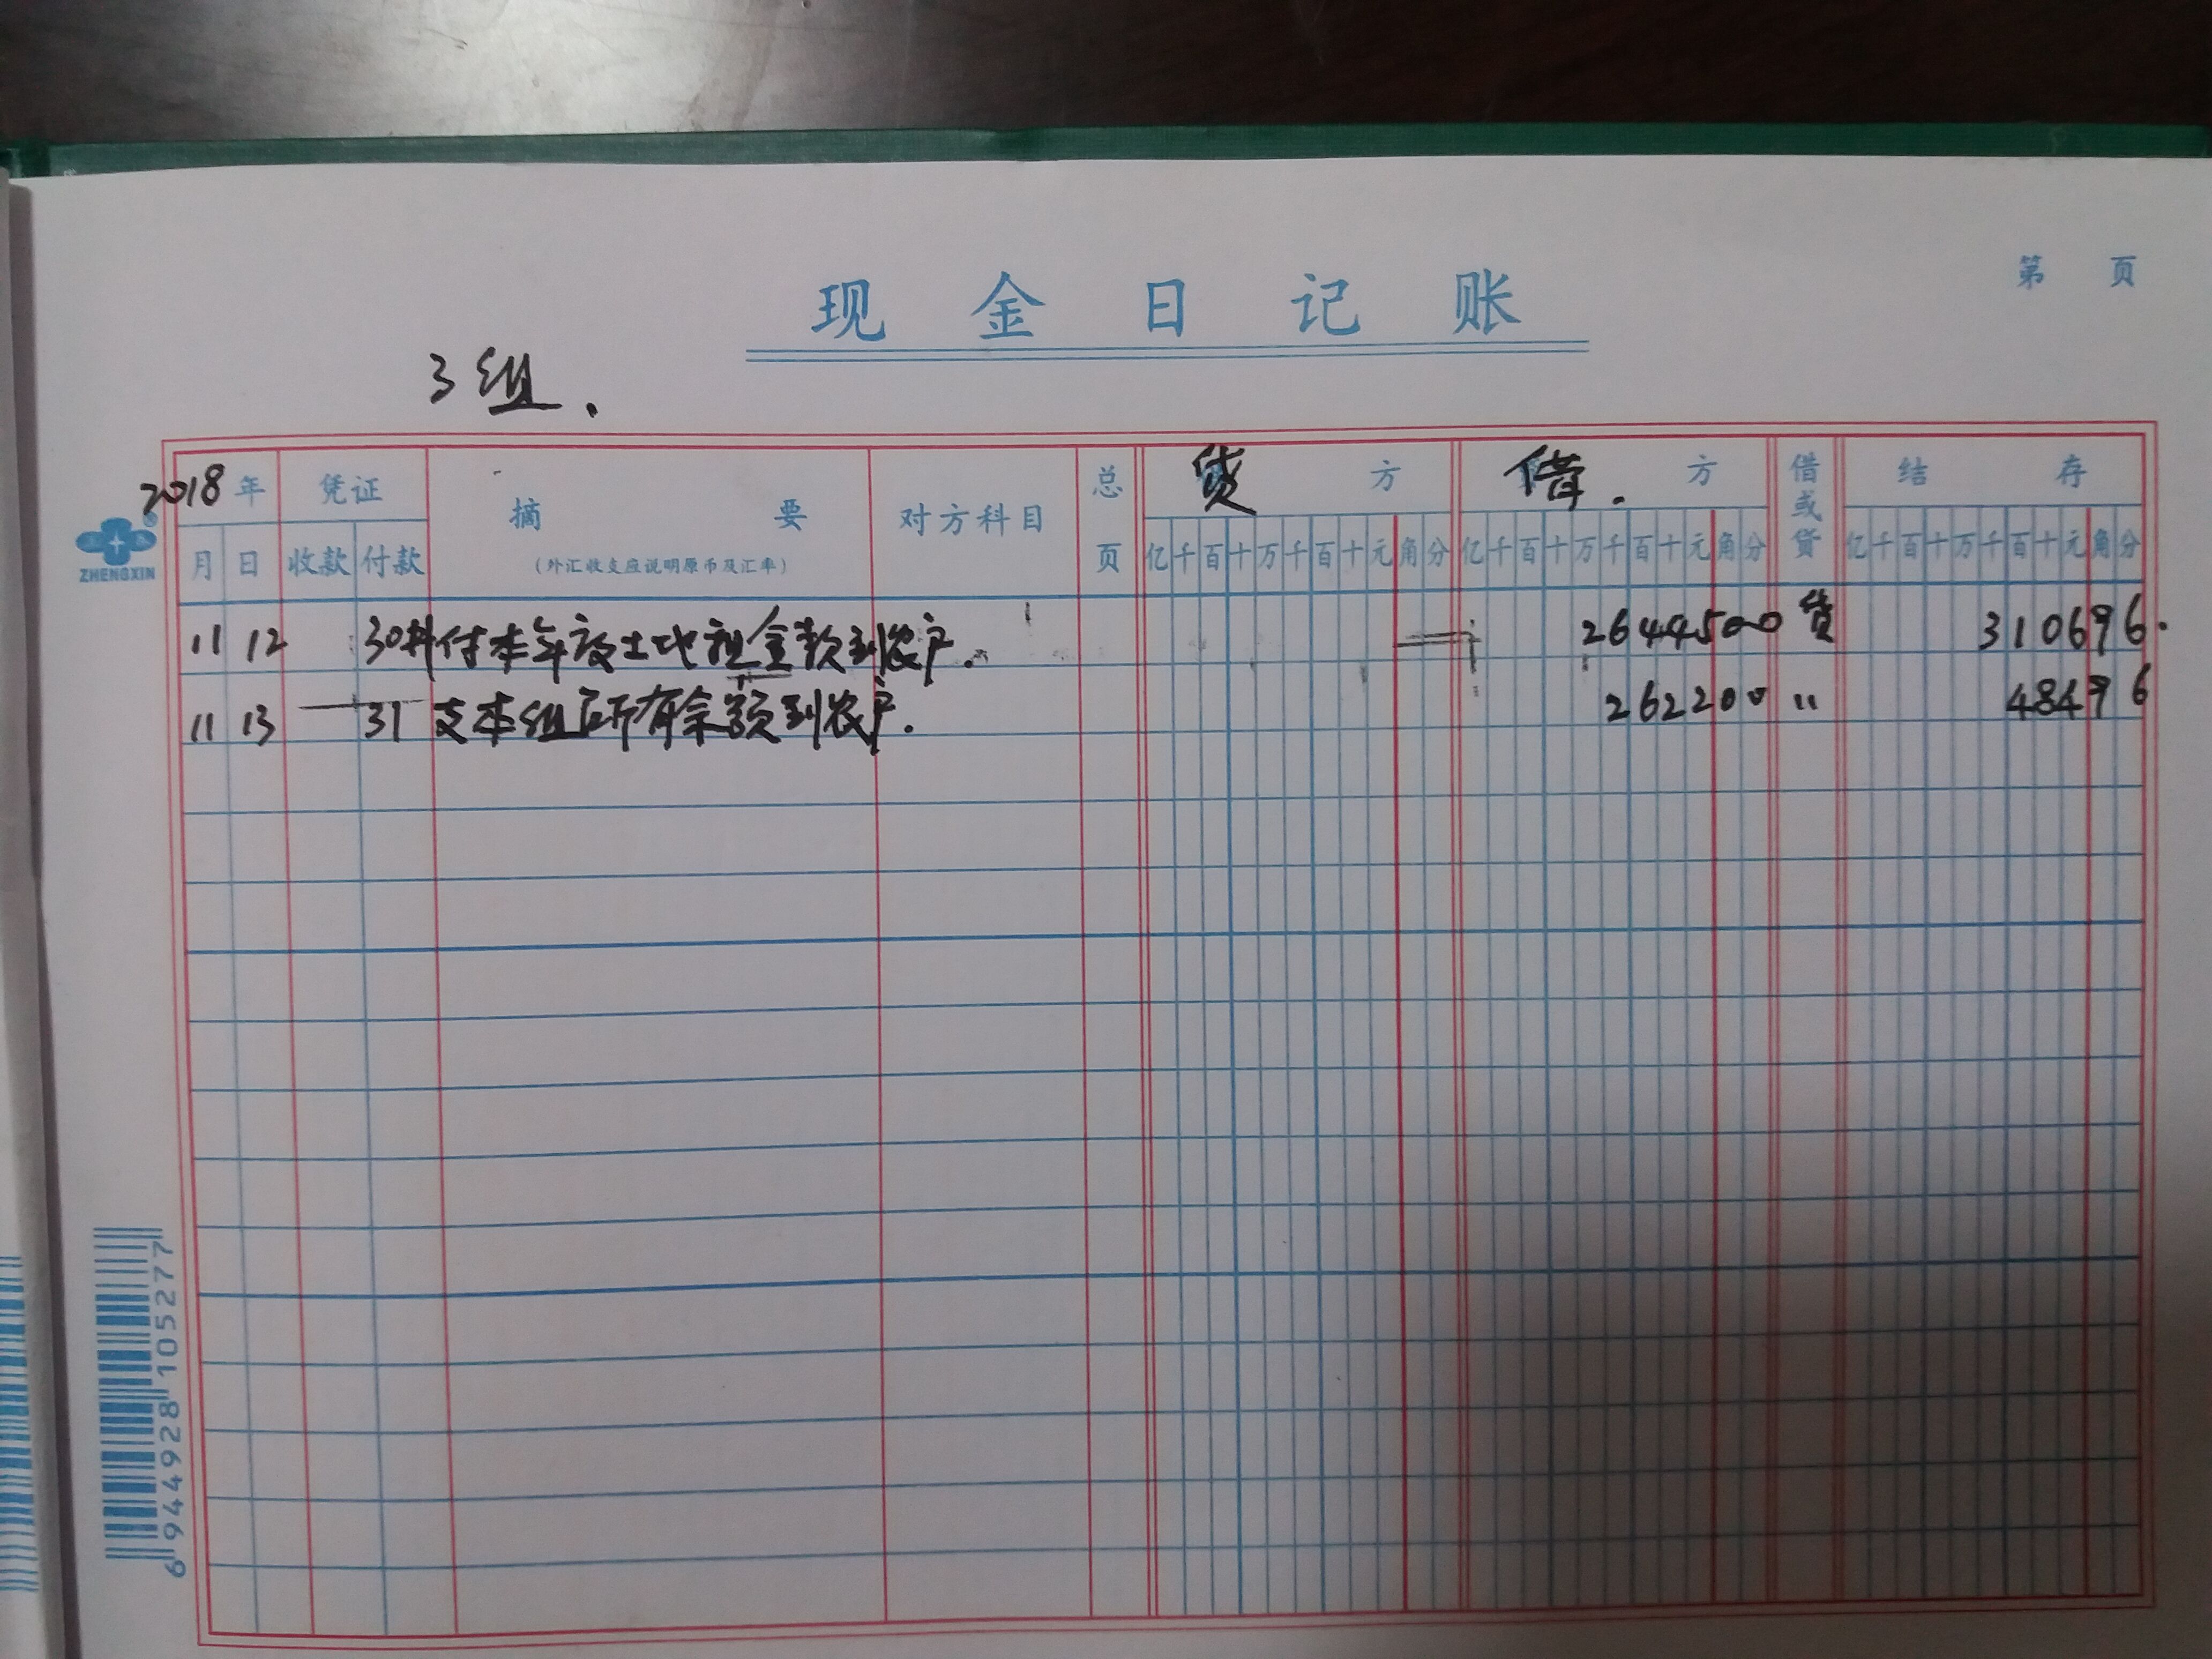 现金日记账
第 页
3组.
2018年 凭证 摘要 对方科目 总页 贷方 借.方 借或贷 结存
月 日 收款 付款 (外汇收支应说明原币及汇率) 亿千百十万千百十元角分 亿千百十万千百十元角分 亿千百十万千百十元角分
11 12 30 付本年度土地租金款到农户. 2644500 贷 310696.
11 13 31 支本组所有余额到农户. 262200 " 48496
ZHENGXIN
6 944928 105277